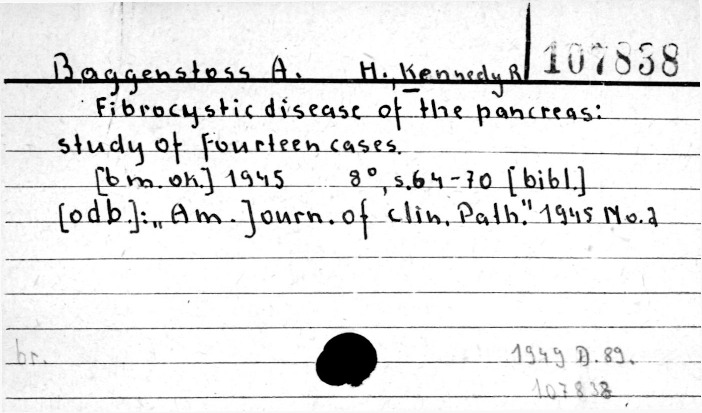 Baggenstoss A. H., Kennedy R
107838
Fibrocystic disease of the pancreas:
study of fourteen cases.
[b m. ok.] 1945 8°, s.64-70 [bibl.]
[odb.]: „Am. Journ. of clin. Path." 1945 No.2
br.
1949 D.89.
107838